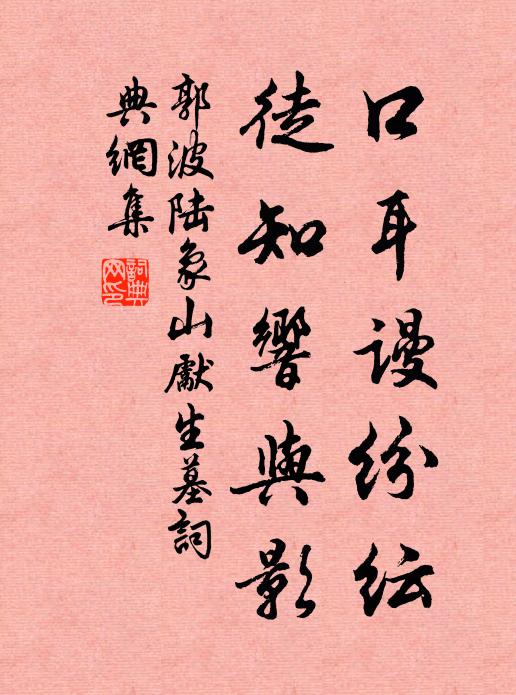 口耳謾紛紜
徒知響與影
郭波陆象山獻生墓詞
典網集
詞典
网印